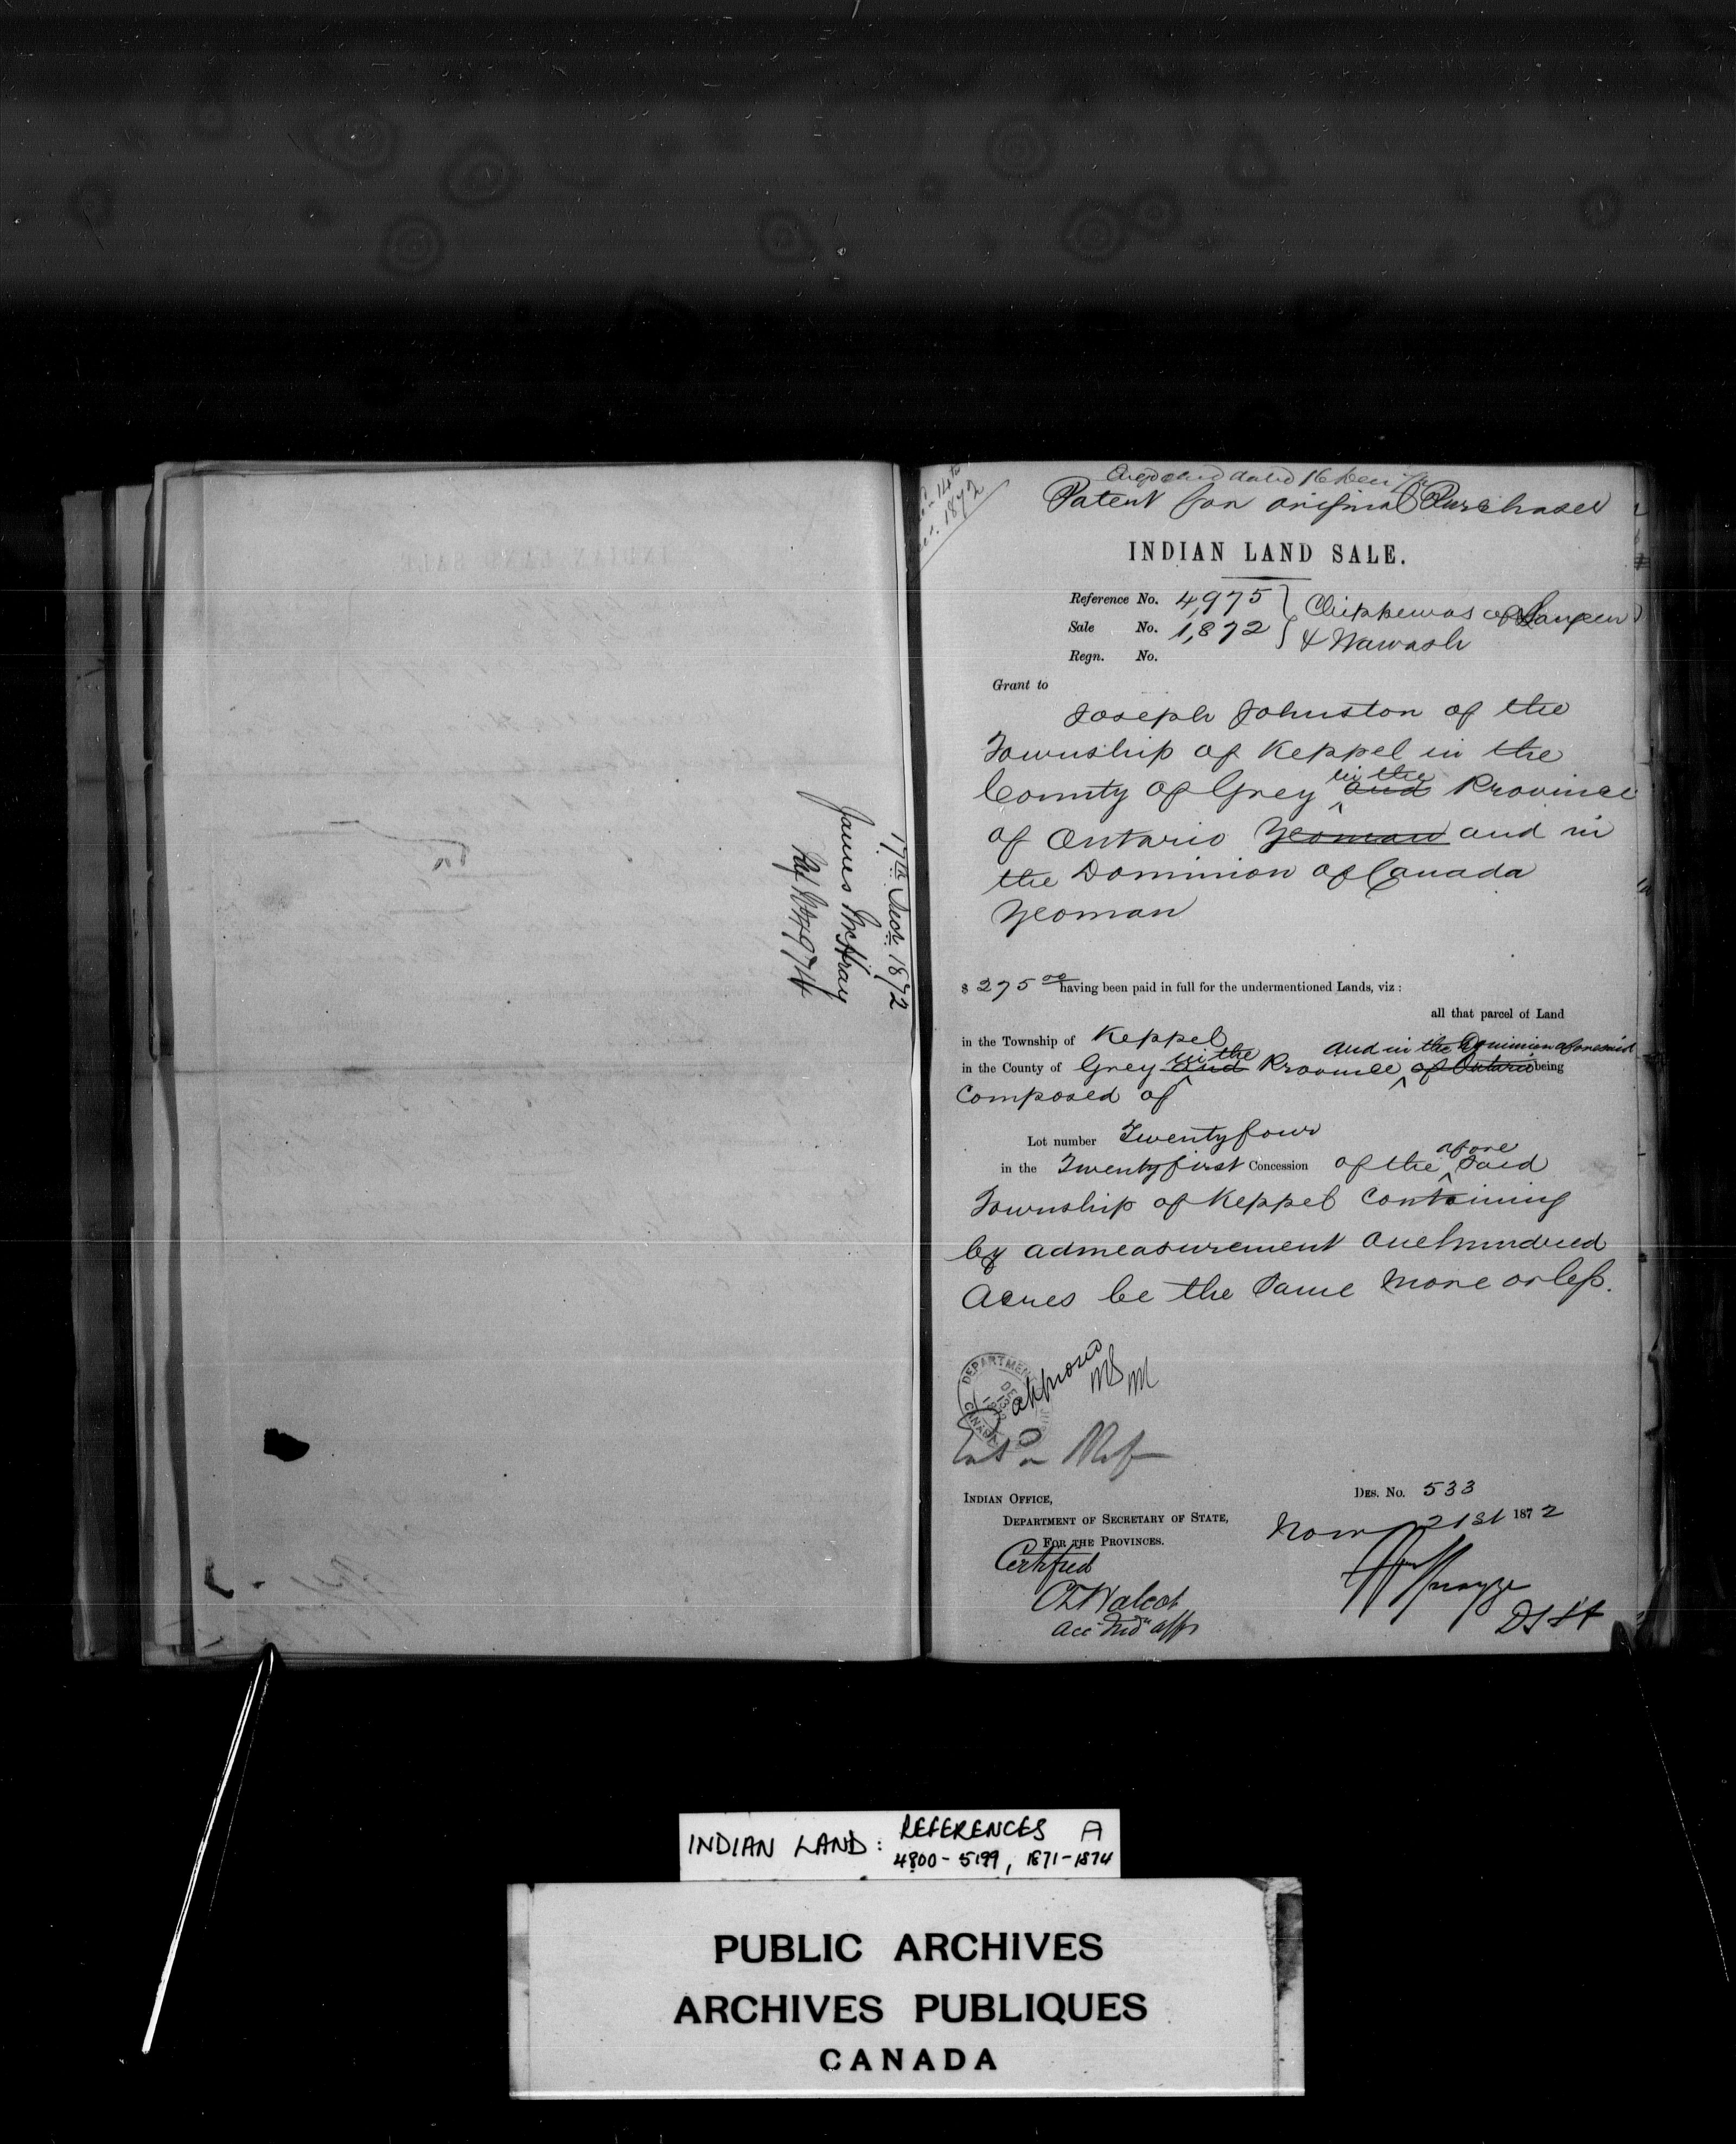 17th Decr. 1872
James McHray
Ref No 4974
14th
1872
Engrossed dated 16 Decr
Patent for original Purchaser
INDIAN LAND SALE.
Reference No. 4,975
Chippewas of Saugeen
Sale No. 1,872
& Nawash
Regn. No.
Grant to
Joseph Johnston of the
Township of Keppel in the
in the
County of Grey and Province
of Ontario Yeoman and in
the Dominion of Canada
Yeoman
$ 275 00 having been paid in full for the undermentioned Lands, viz :
all that parcel of Land
in the Township of Keppel
in the and in the Dominion aforesaid
in the County of Grey and Province of Ontario being
Composed of
Lot number Twenty four
afore
in the Twenty first Concession of the Said
Township of Keppel Containing
by admeasurement one hundred
Acres be the Same more or less.
DEPARTMENT
DEC
13
1872
CANADA
approved
Indian Office,
Des. No. 533
Department of Secretary of State,
Novr 21st 1872
For the Provinces.
Certified
Walcot
acc Indn affs